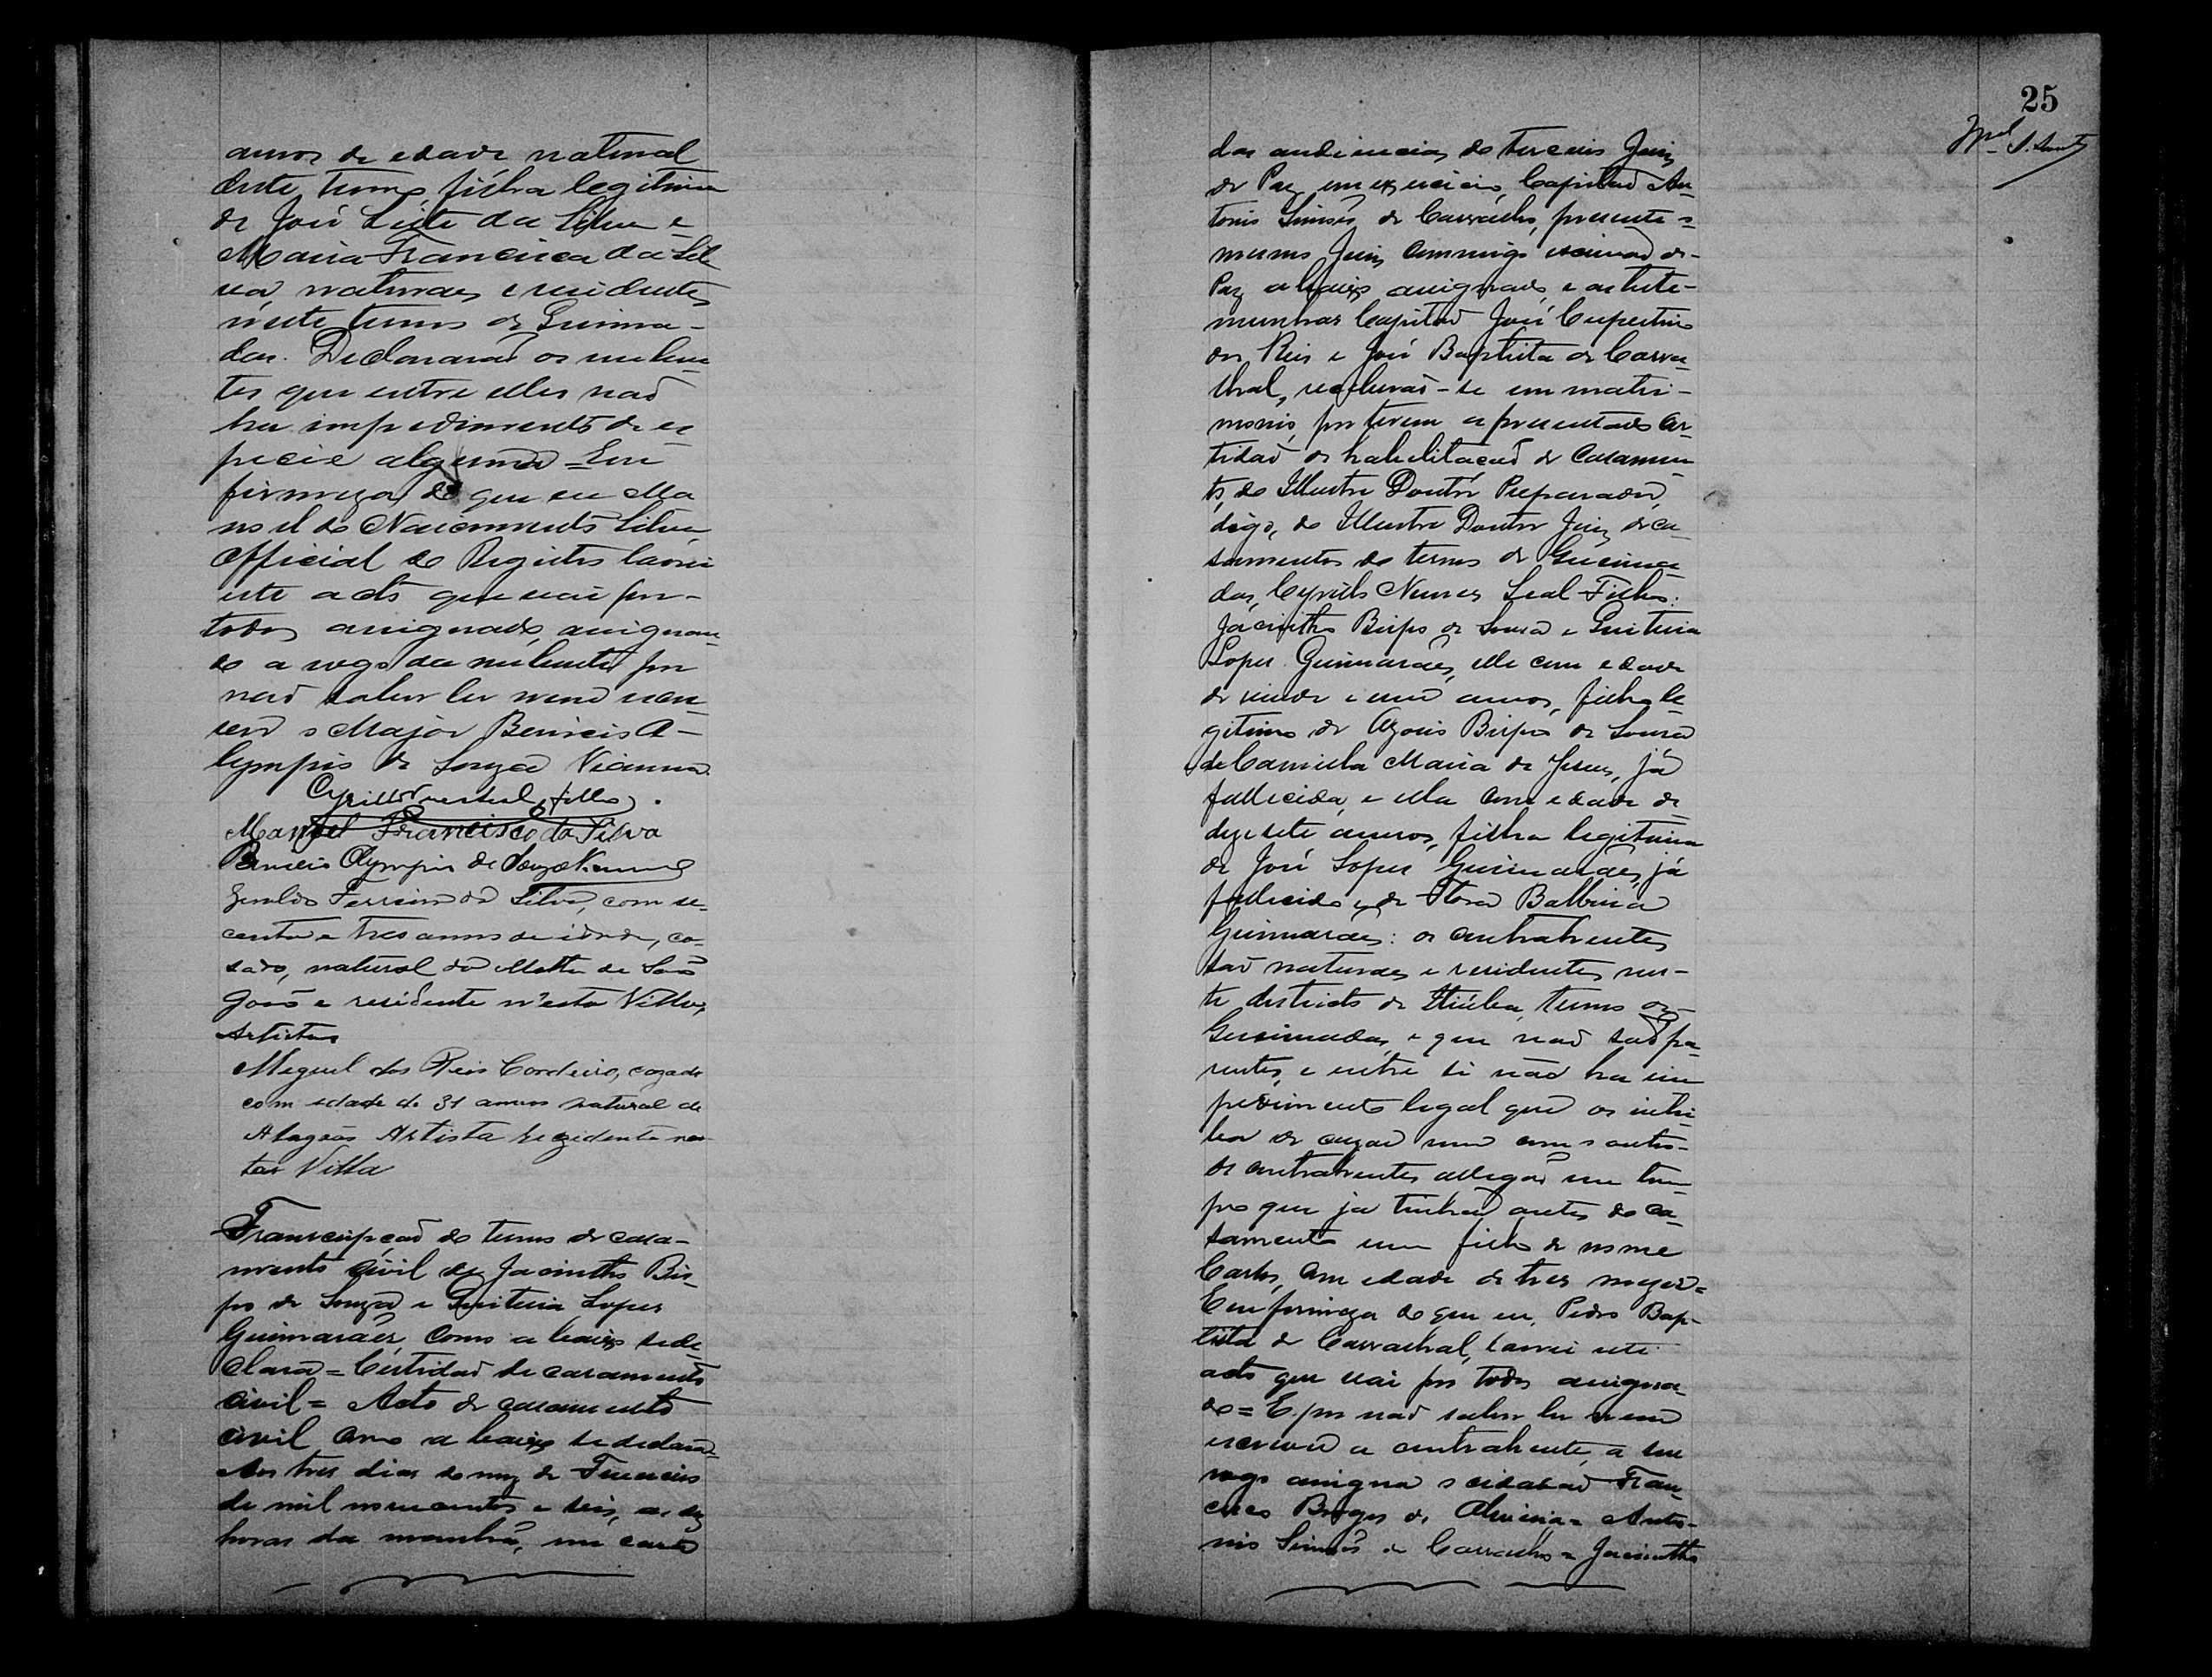 annos de edade natural
deste termo, filha legitima
de José Leite da Silva e
Maria Francisca da Sil
va, naturaes e residentes
n'este termo de Queima-
das. Declararaõ os nuben
tes que entre elles naõ
ha impedimento de es
pecie alguma = Em
firmeza do que eu Ma
noel do Nascimento Silva
Official do Registro lavrei
este acto que vai por
todos assignado, assignan
do a rogo da nubente por
naõ saber ler nem escre
ver o Major Benicio O-
lympio de Souza Vianna.
Cyrillo Nunes Leal, filho.
Manoel Francisco da Silva
Benicio Olympio de Souza Vianna
Geraldo Ferreira da Silva, com se-
centa e tres annos de idade, ca-
sado, natural da Matta de Saõ
Joaõ e residente n'esta Villa,
Artista
Miguel dos Reis Cordeiro, cazado
com edade de 31 annos natural de
Alagoas Artista rezidente nes
ta Villa
Transcripçaõ do termo de casa-
mento civil de Jacintho Bis-
po de Souza e Quiteria Lopes
Guimarães, como abaixo se de-
clara = Certidaõ de casamento
civil = Acto de casamento
civil como abaixo se declara =
Aos tres dias do mez de Fevereiro
de mil novecentos e seis, as dez
horas da manhã, em casa
25
das audiencias do terceiro Juiz
de Paz em exercicio, Capitaõ An
tonio Simões de Carvalho, presente o
mesmo Juiz commigo escrivaõ de
Paz abaixo assignado, e as teste-
munhas Capitaõ José Cupertino
dos Reis e José Baptista de Carva
lhal, receberaõ-se em matri-
monio, por terem apresentado cer-
tidaõ de habilitaçaõ de casamen
to, do Illustre Doutor Preparador,
digo, do Illustre Doutor Juiz de ca-
samentos do termo de Queima
das, Cyrillo Nunes Leal Filho:
Jacintho Bispo de Souza e Quiteria
Lopes Guimarães, elle com edade
de vinte e um annos, filho le
gitimo de Bispo de Souza
e de Camilla Maria de Jesus, já
fallecida, e ella com edade de
dezesete annos, filha legitima
de José Lopes Guimarães, já
fallecido e de Flora Balbina
Guimarães: os contrahentes
saõ naturaes e residentes nes-
te districto de Itiúba, termo de
Queimadas, e que naõ saõ pa-
rentes, e entre si não ha im
pedimento legal que os inhi
ba de cazar um com o outro -
Os contrahentes allegaõ em tem
po que ja tinhaõ antes do ca-
samento um filho de nome
Carlos, com edade de tres mezes =
E em firmeza do que eu, Pedro Bap-
tista de Carvalhal, lavrei este
acto que vai por todos assigna-
do = E por naõ saber ler nem
escrever a contrahente, a seu
rogo assigna o cidadaõ Fran
cisco Borges de Oliveira = Anto-
nio Simões de Carvalho = Jacintho